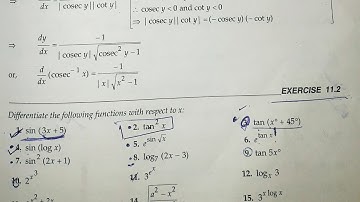 | cosec y || cot y |
∴ cosec y < 0 and cot y < 0
⇒ | cosec y || cot y | = (− cosec y) (− cot y)
⇒ dy/dx = −1 / | cosec y | √(cosec² y − 1)
or, d/dx (cosec⁻¹ x) = −1 / | x | √(x² − 1)
EXERCISE 11.2
Differentiate the following functions with respect to x:
sin (3x + 5) • 2. tan² x tan (x° + 45°)
4. sin (log x) • 5. e^(sin √x) 6. e^(tan x)
• 7. sin² (2x + 1) • 8. log₇ (2x − 3) 9. tan 5x°
10. 2^(x³) 11. 3^(e^x) 12. log_x 3
15. 3^(x log x)